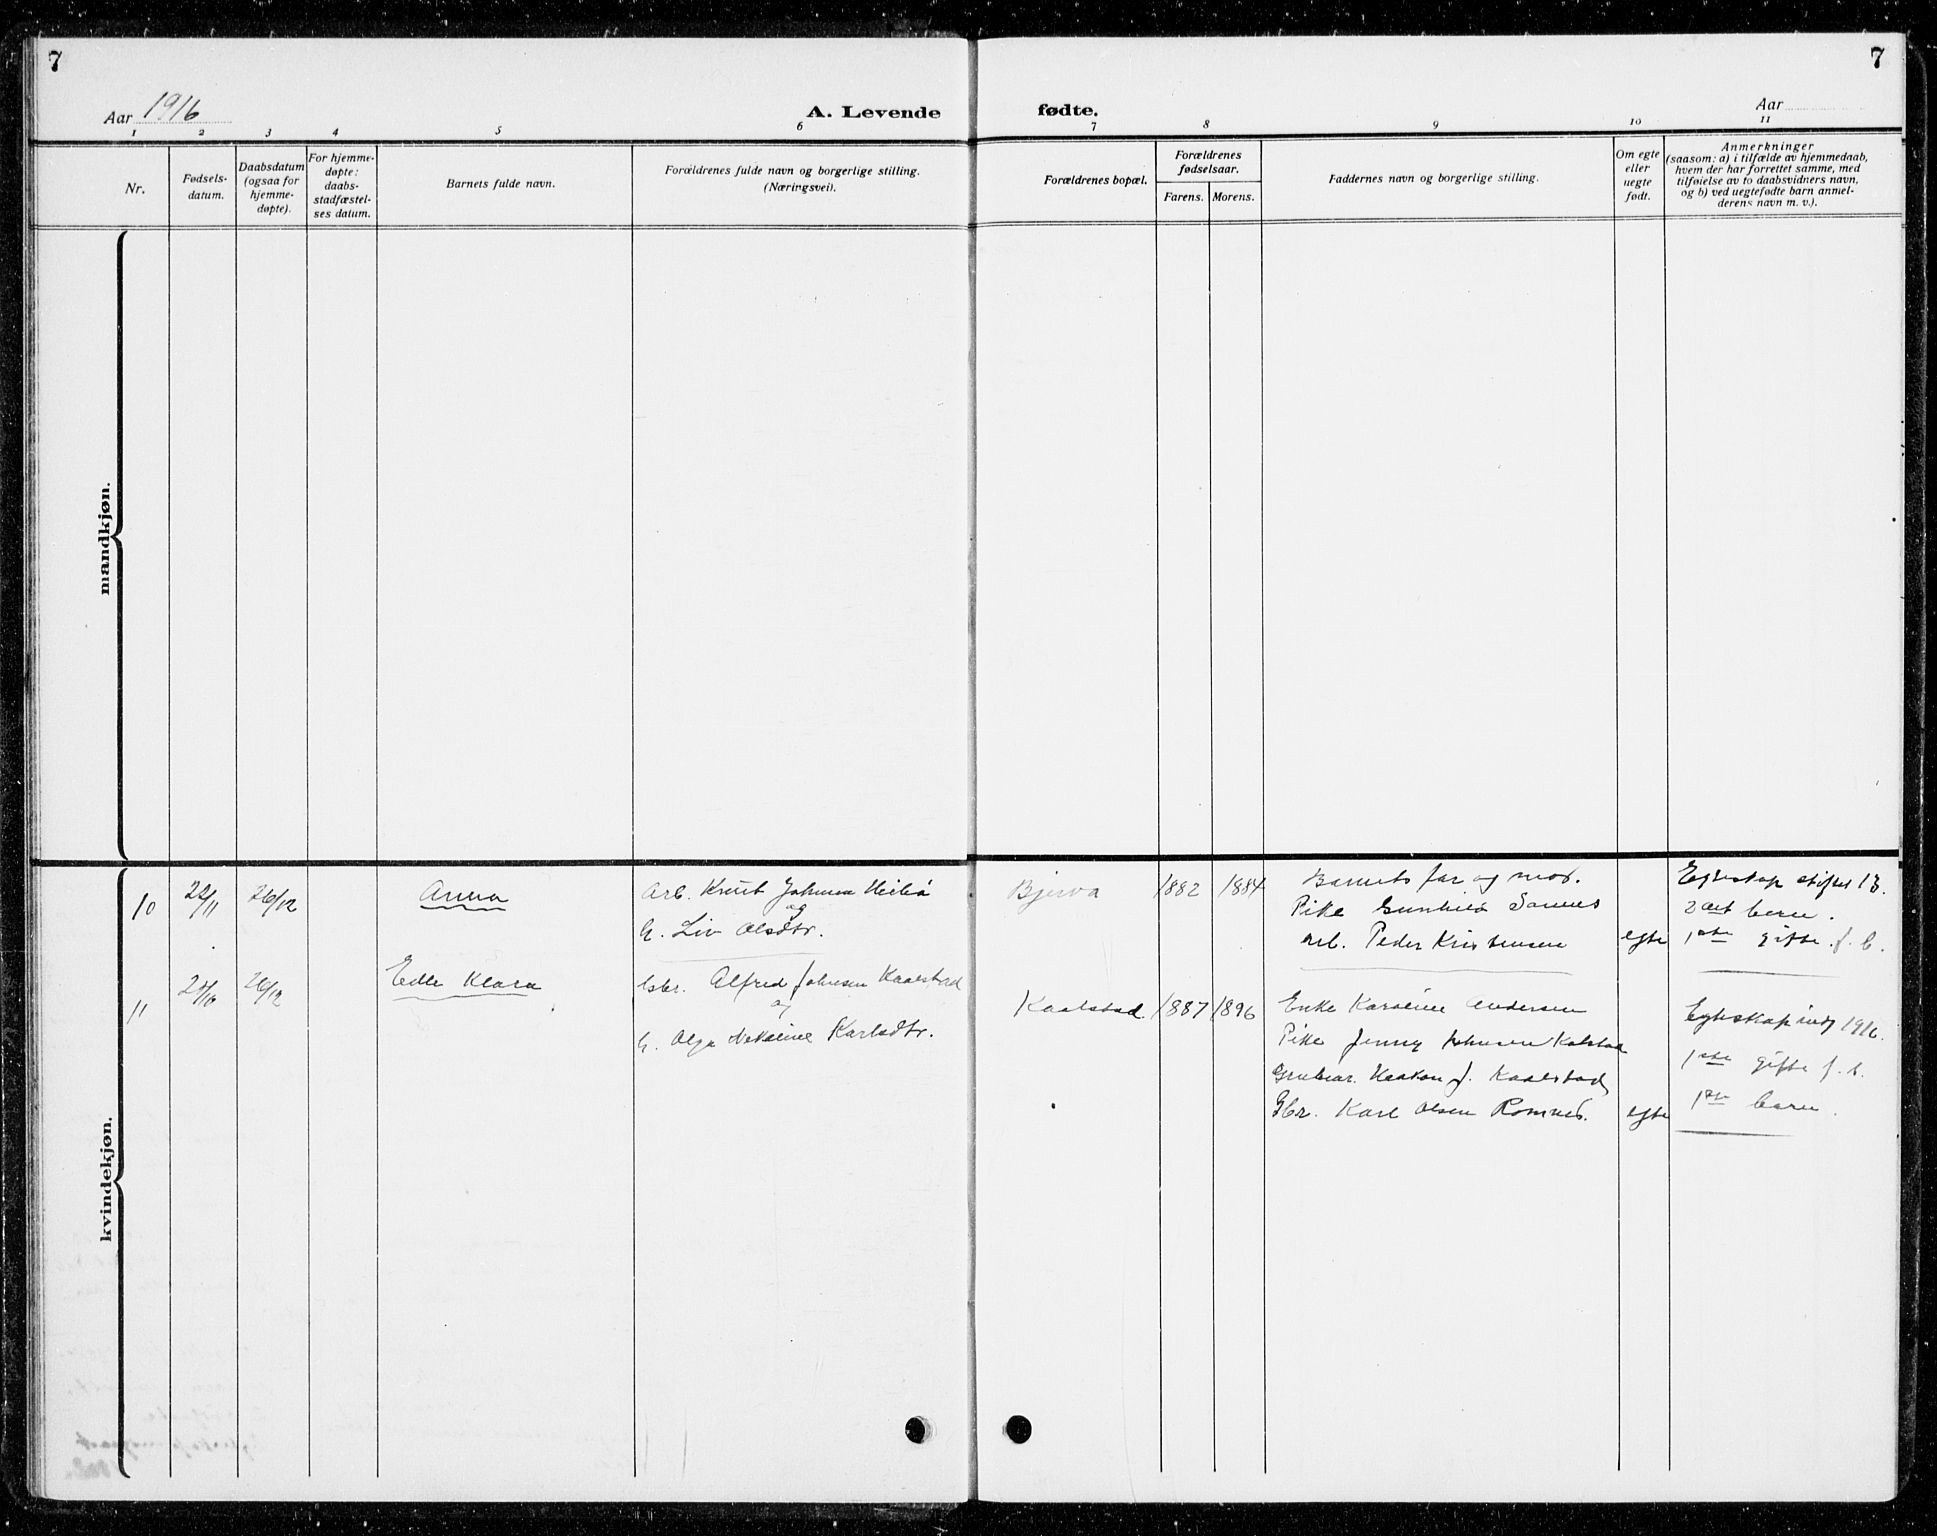 7
7
Aar 1916
A. Levende
fødte.
Aar
1 2 3 4 5 6 7 8 9 10 11
Nr.
Fødsels-
datum.
Daabsdatum
(ogsaa for
hjemme-
døpte).
For hjemme-
døpte:
daabs-
stadfæstel-
ses datum.
Barnets fulde navn.
Forældrenes fulde navn og borgerlige stilling.
(Næringsvei).
Forældrenes bopæl.
Forældrenes
fødselsaar.
Farens. Morens.
Faddernes navn og borgerlige stilling.
Om egte
eller
uegte
født.
Anmerkninger
(saasom: a) i tilfælde av hjemmedaab,
hvem der har forrettet samme, med
tilføielse av to daabsvidners navn,
og b) ved uegtefødte barn anmel-
derens navn m. v.).
mandkjøn.
kvindekjøn.
10
22/11
26/12
Anna
Arb. Knut Johnsen
og
h. Liv Olsdtr.
Bjerva
1882 1884
Barnets far og mor.
Pike Gunhild
arb. Peder Kristensen
egte
Egteskap stiftet 13.
2det barn.
1ste gifte f. b.
11
26/12
Edle Klara
Gbr. Alfred Johnsen Kaalstad
og
h. Olga Nekoline Karlsdtr.
Kaalstad
1887 1896
Enke Karoline Andersen
Pike Jenny Johnsen Kalstad
Grubear. Haakon J. Kaalstad
Gbr. Karl Olsen Romnes.
egte
Egteskap indg 1916.
1ste gifte f. b.
1ste barn.